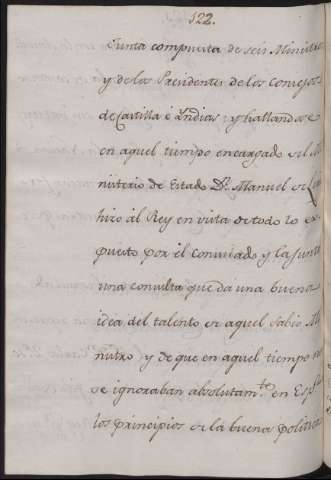 122.
Junta compuesta de seis Ministros
y de los Presidentes de los Consejos
de Castilla e Indias: y hallandose
en aquel tiempo encargado del Mi
nisterio de Estado Dn. Manuel de
hizo al Rey en vista de todo lo ex
puesto por el comisado y la Junta
una consulta que da una buena
idea del talento de aquel sabio Mi
nistro y de que en aquel tiempo no
se ignoraban absolutamte. en Espa
los principios de la buena politica